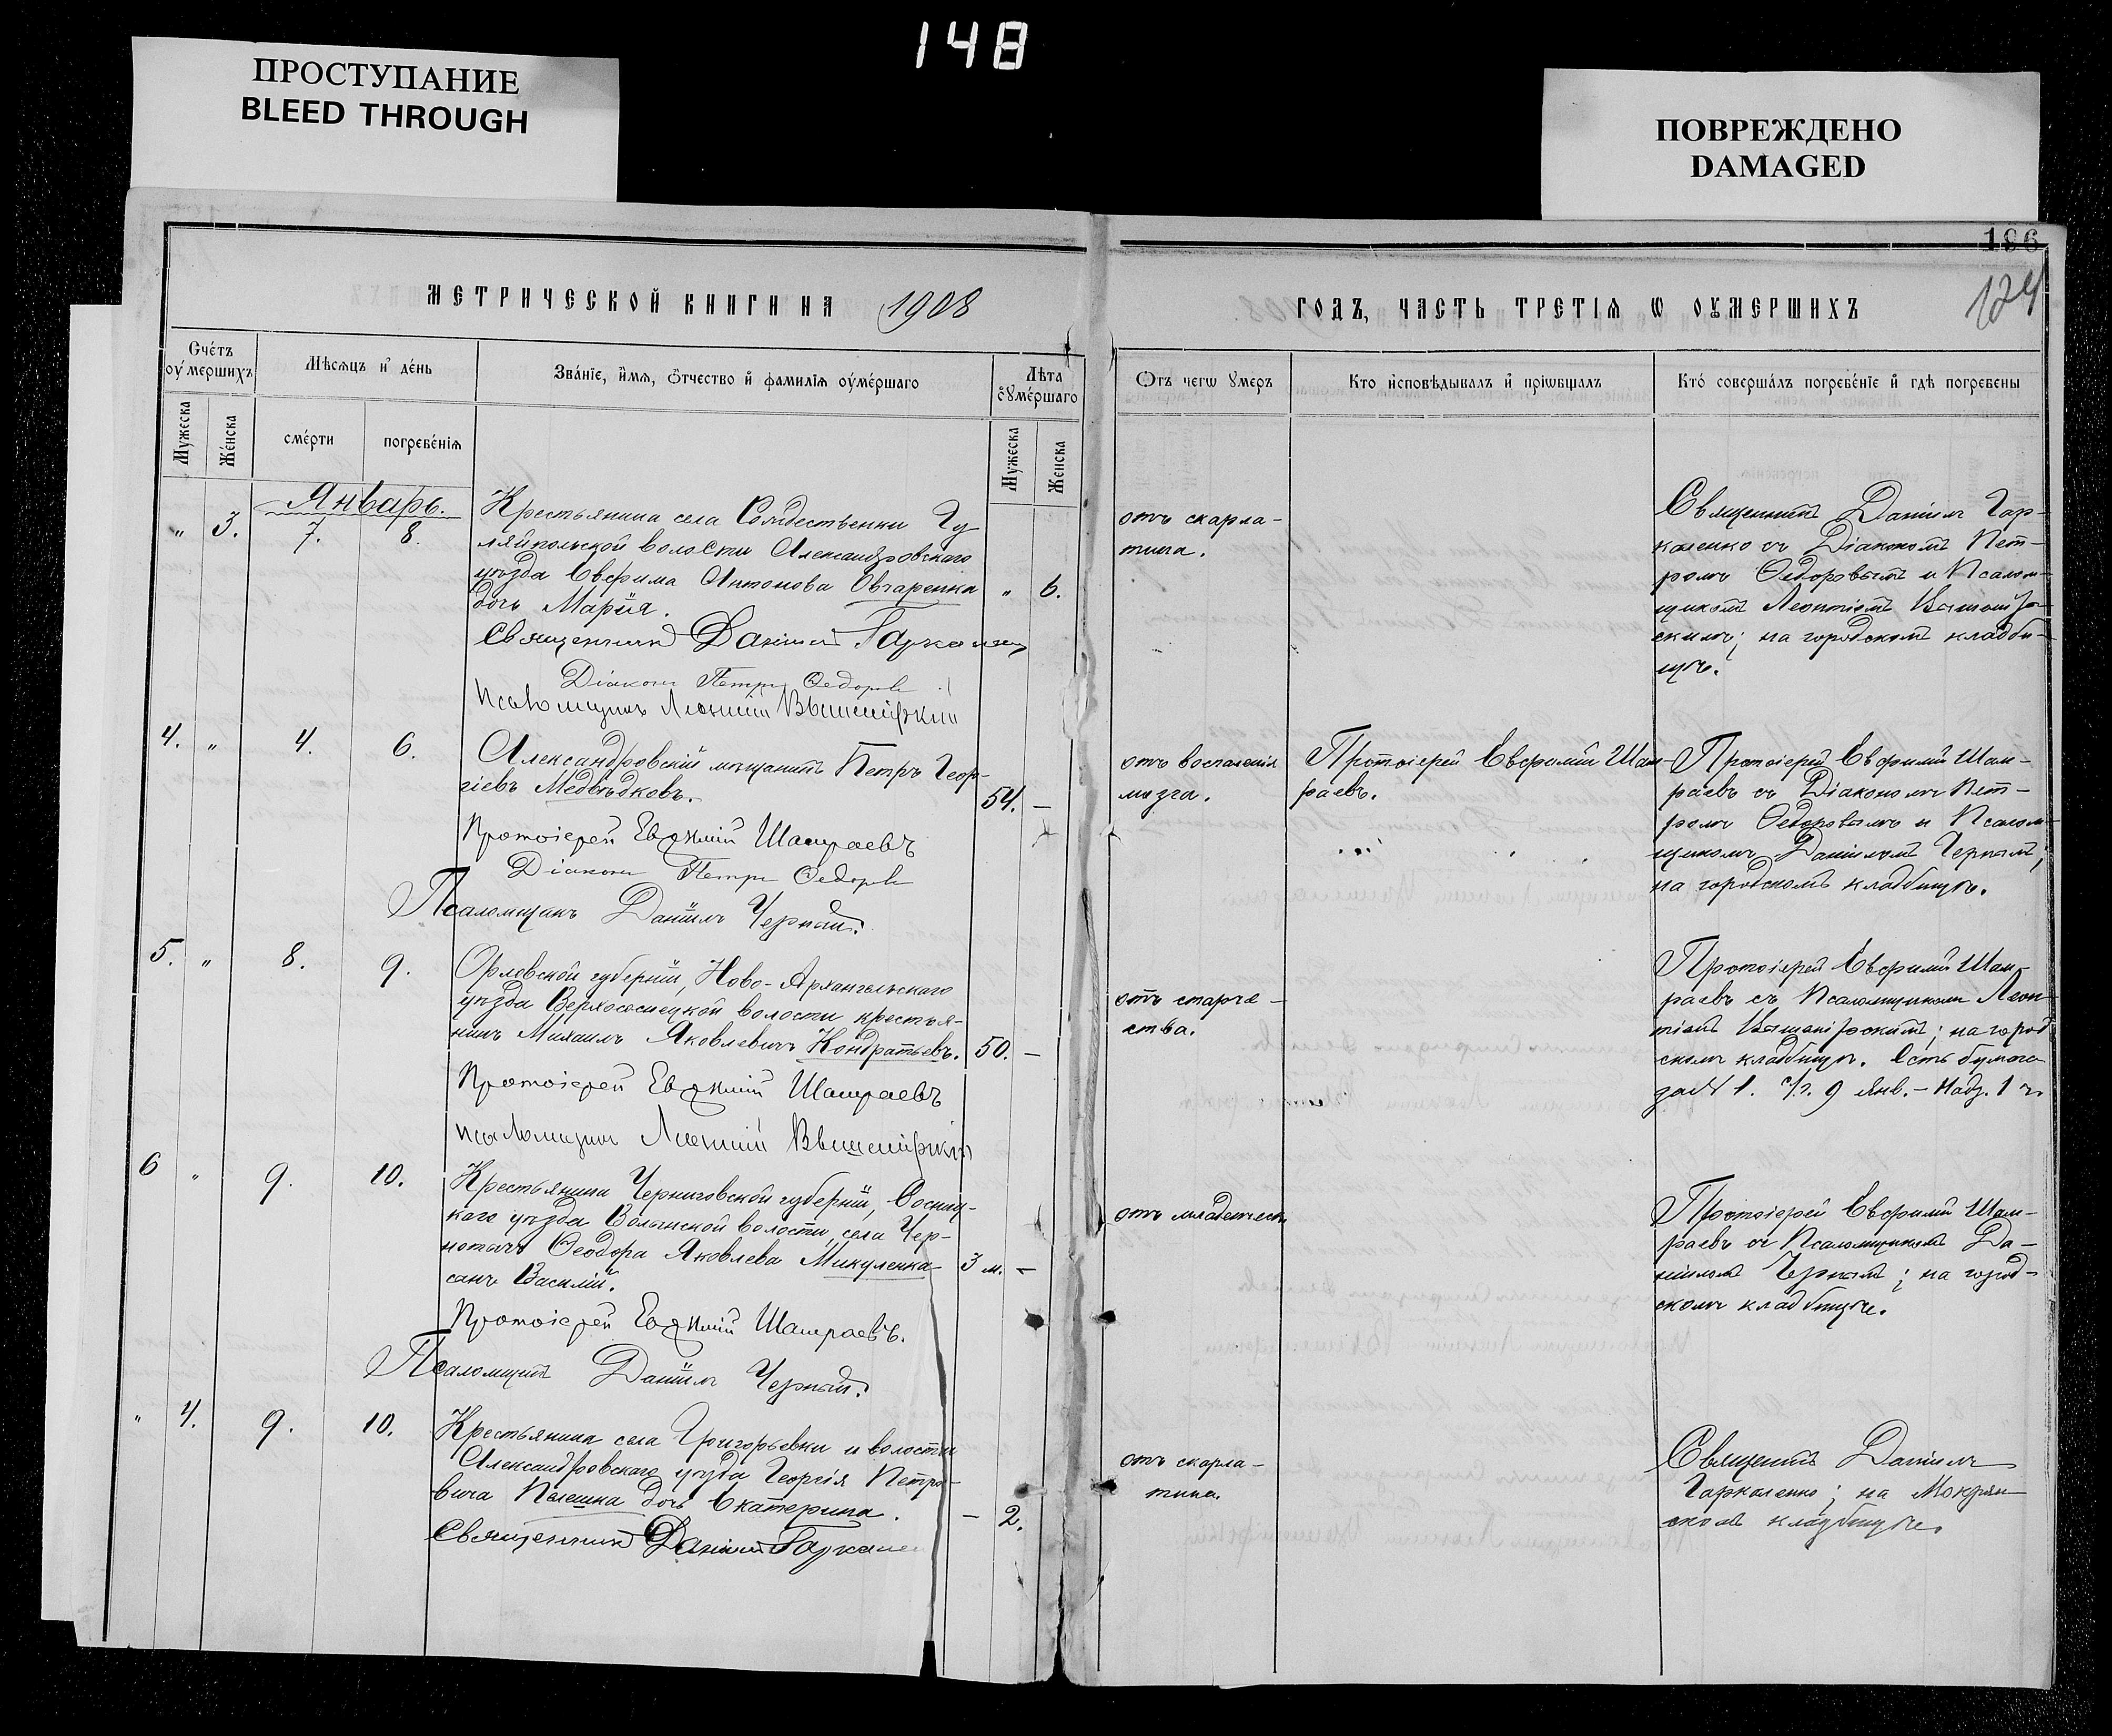 148
ПРОСТУПАНИЕ
BLEED THROUGH
ПОВРЕЖДЕНО
DAMAGED
196
124
МЕТРИЧЕСКОЙ КНИГИ НА 1908
ГОДЪ, ЧАСТЬ ТРЕТІѦ Ѡ ОУМЕРШИХЪ
Счéтъ оумершихъ
Мѣсяцъ и дéнь
Звáнїе, и́мя, ѻ́тчество и фамилїя оумéршаго
Лѣта оумéршаго
Мужеска
Женска
смéрти
погребéнїя
Мужеска
Женска
Ѿъ чегѡ умеръ
Кто исповѣдывалъ и прїѡбщалъ
Ктó совершáлъ погребéнїе и гдѣ погребены
Январь.
„ 3. 7. 8.
Крестьянина села Рождественки Гу-
ляйпольской волости Александровскаго
уѣзда Евфима Антонова Овчаренка
дочь Марія.
„ 6.
Священникъ Даніилъ
Діаконъ Петръ Ѳедоровъ
Псаломщикъ Леонтій
отъ скарла-
тины.
Священникъ Даніилъ Гар-
каленко съ Діакономъ Пет-
ромъ Ѳедоровымъ и Псалом-
щикомъ Леонтіемъ
скимъ; на городскомъ кладби-
щѣ.
4. „ 4. 6.
Александровскій мѣщанинъ Петръ Геор-
гіевъ Медвѣдковъ.
54. —
Протоіерей Евфимій Шамраевъ
Діаконъ Петръ Ѳедоровъ
Псаломщикъ Даніилъ Черный.
отъ воспаленія
мозга.
Протоіерей Евфимій Шам-
раевъ.
Протоіерей Евфимій Шам-
раевъ съ Діакономъ Пет-
ромъ Ѳедоровымъ и Псалом-
щикомъ Даніиломъ Чернымъ;
на городскомъ кладбищѣ.
5. „ 8. 9.
Орловской губерніи, Ново-Архангельскаго
уѣзда Верхососенской волости крестья-
нинъ Михаилъ Яковлевичъ Кондратьевъ.
50. —
Протоіерей Евфимій Шамраевъ
Псаломщикъ Леонтій
отъ старче-
ства.
Протоіерей Евфимій Шам-
раевъ съ Псаломщикомъ Леон-
тіемъ; на город
скомъ кладбищѣ. Есть бумага
за № 1. с/г. 9 Янв. — Надз. 1 ч.
6 „ 9. 10.
Крестьянина Черниговской губерніи, Сосниц-
каго уѣзда Волынской волости, села Чер-
нотичъ Ѳеодора Яковлева Микуленка
сынъ Василій.
3 м. —
Протоіерей Евфимій Шамраевъ.
Псаломщикъ Даніилъ Черный.
отъ младенчест
Протоіерей Евфимій Шам-
раевъ съ Псаломщикомъ Да-
ніиломъ Чернымъ; на город-
скомъ кладбищѣ.
„ 4. 9. 10.
Крестьянина села Григорьевки и волости
Александровскаго уѣзда Георгія Петро-
вича дочь Екатерина.
— 2.
Священникъ Даніилъ
отъ скарла-
тины.
Священникъ Даніилъ
Гаркаленко; на Мокрян-
скомъ кладбищѣ.